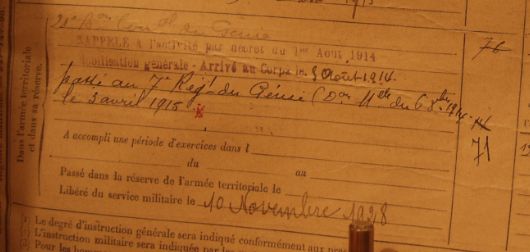 1915
Dans l'armée territoriale
et dans sa réserve.
du Génie
RAPPELÉ à l'activité par décret du 1er Août 1914
Mobilisation générale - Arrivé au Corps le 3 Août 1914.
76
passé au 7e Régt du Génie (Don Mlle du 6 1914
le 3 avril 1915
71
A accompli une période d'exercices dans l
du au
Passé dans la réserve de l'armée territoriale le
Libéré du service militaire le 10 Novembre 1928
Le degré d'instruction générale sera indiqué conformément aux
L'instruction militaire sera indiquée par
Pour les